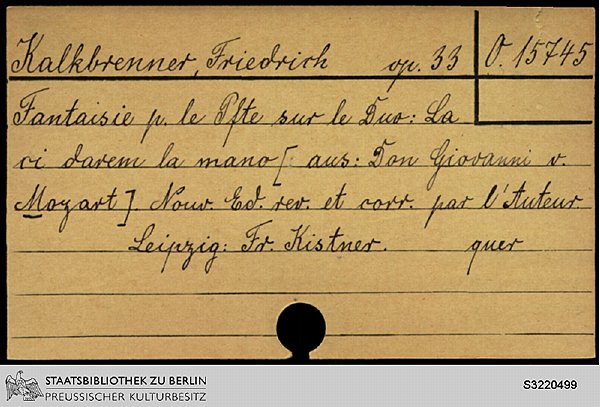 Kalkbrenner, Friedrich op. 33 O. 15745
Fantaisie p. le Pfte sur le Duo: La
ci darem la mano [aus: Don Giovanni v.
Mozart]. Nouv. Ed. rev. et corr. par l'Auteur.
Leipzig: Fr. Kistner. quer
STAATSBIBLIOTHEK ZU BERLIN
PREUSSISCHER KULTURBESITZ
S3220499